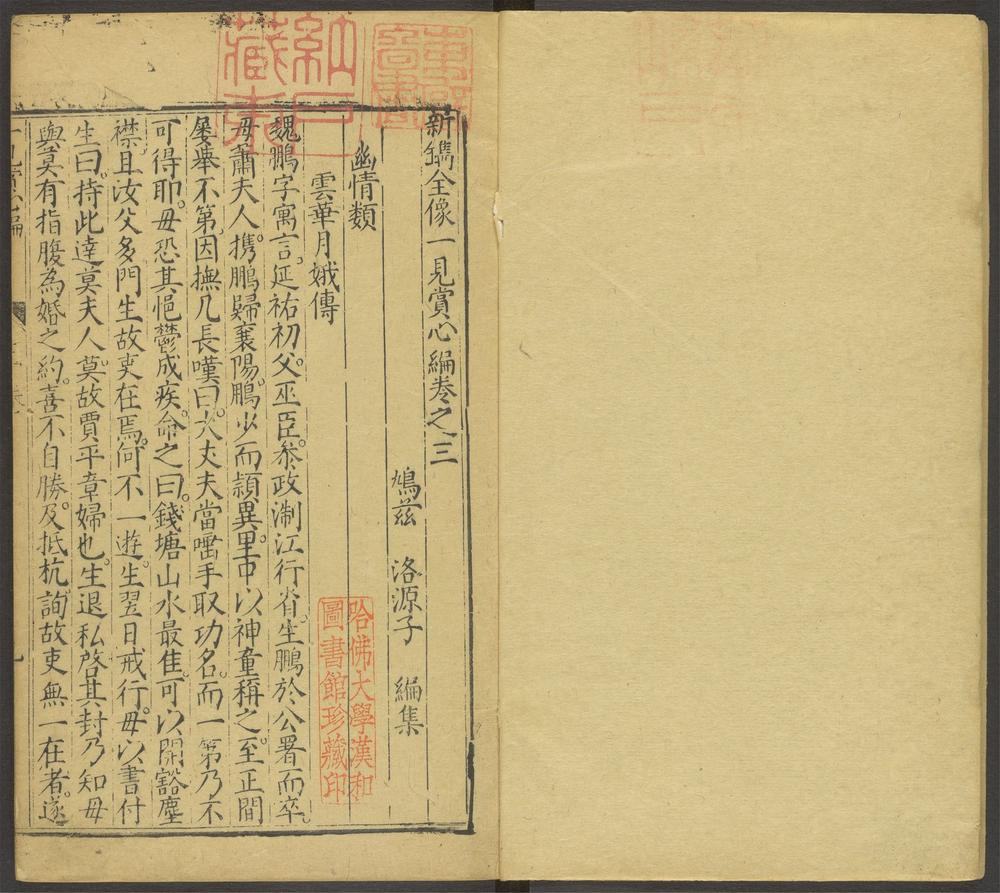 新鐫全像一見賞心編卷之三
鳩茲 洛源子 編集
幽情類
雲華月娥傳
魏鵬字寓言。延祐初父。巫臣。叅政淛江行省。生鵬於公署而卒。
母蕭夫人。携鵬歸襄陽。鵬少而頴異。里中以神童稱之。至正間
屡舉不第。因撫几長嘆曰。大丈夫當唾手取功名。而一第乃不
可得耶。母恐其悒鬱成疾。命之曰。錢塘山水最佳。可以開豁塵
襟。且汝父多門生故吏在焉。何不一遊。生翌日戒行。母以書付
生曰。持此達莫夫人。莫故賈平章婦也。生退私啓其封乃知母
與莫有指腹為婚之約。喜不自勝。及抵杭詢故吏無一在者。遂
納戶藏本
圖書
哈佛大學漢和
圖書館珍藏印